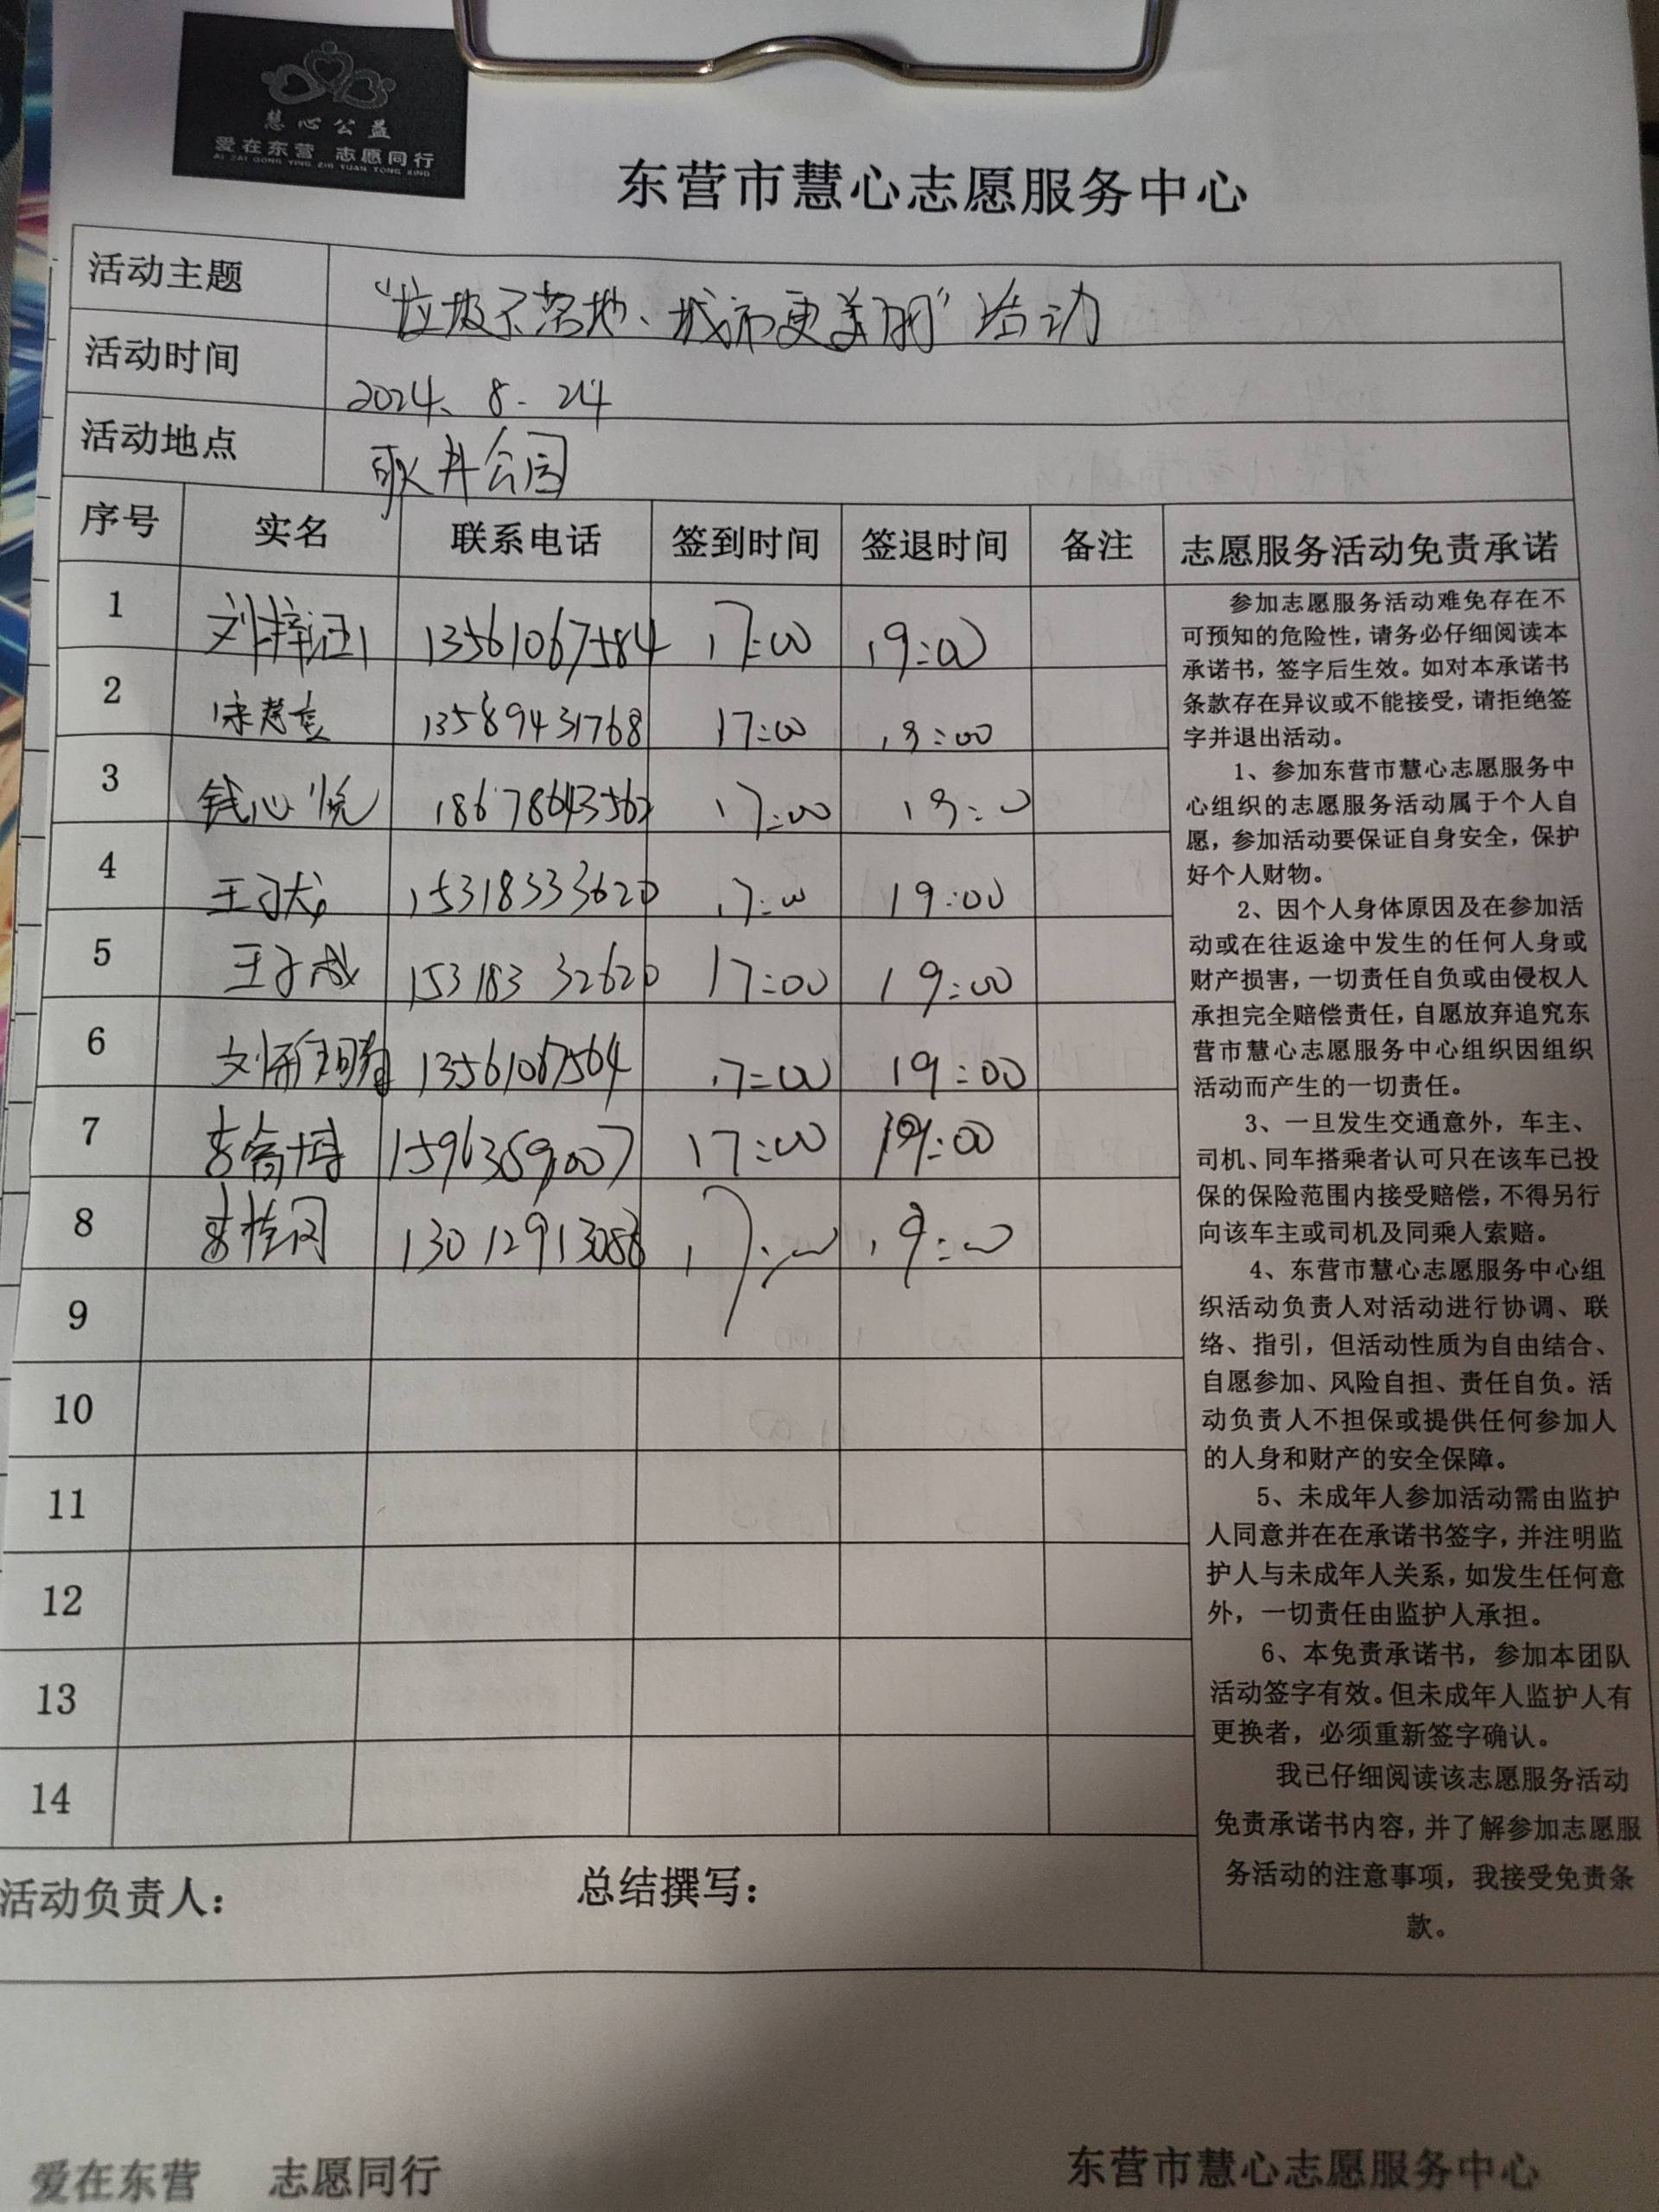 慧心公益
爱在东营 志愿同行
AI ZAI DONG YING ZHI YUAN TONG XING
东营市慧心志愿服务中心
活动主题 “垃圾不落地、城市更美丽”活动
活动时间 2024、8-24
活动地点 耿井公园
序号 实名 联系电话 签到时间 签退时间 备注 志愿服务活动免责承诺
1 13561067584 17:00 19:00
2 13589431768 17:00 19:00
3 钱心悦 17:00 19:00
4 15318333620 17:00 19:00
5 王子成 15318332620 17:00 19:00
6 13561067564 17:00 19:00
7 李俞博 15963659007 17:00 19:00
8 17:00 19:00
9
10
11
12
13
14
参加志愿服务活动难免存在不
可预知的危险性，请务必仔细阅读本
承诺书，签字后生效。如对本承诺书
条款存在异议或不能接受，请拒绝签
字并退出活动。
1、参加东营市慧心志愿服务中
心组织的志愿服务活动属于个人自
愿，参加活动要保证自身安全，保护
好个人财物。
2、因个人身体原因及在参加活
动或在往返途中发生的任何人身或
财产损害，一切责任自负或由侵权人
承担完全赔偿责任，自愿放弃追究东
营市慧心志愿服务中心组织因组织
活动而产生的一切责任。
3、一旦发生交通意外，车主、
司机、同车搭乘者认可只在该车已投
保的保险范围内接受赔偿，不得另行
向该车主或司机及同乘人索赔。
4、东营市慧心志愿服务中心组
织活动负责人对活动进行协调、联
络、指引，但活动性质为自由结合、
自愿参加、风险自担、责任自负。活
动负责人不担保或提供任何参加人
的人身和财产的安全保障。
5、未成年人参加活动需由监护
人同意并在在承诺书签字，并注明监
护人与未成年人关系，如发生任何意
外，一切责任由监护人承担。
6、本免责承诺书，参加本团队
活动签字有效。但未成年人监护人有
更换者，必须重新签字确认。
我已仔细阅读该志愿服务活动
免责承诺书内容，并了解参加志愿服
务活动的注意事项，我接受免责条
款。
活动负责人： 总结撰写：
爱在东营 志愿同行 东营市慧心志愿服务中心